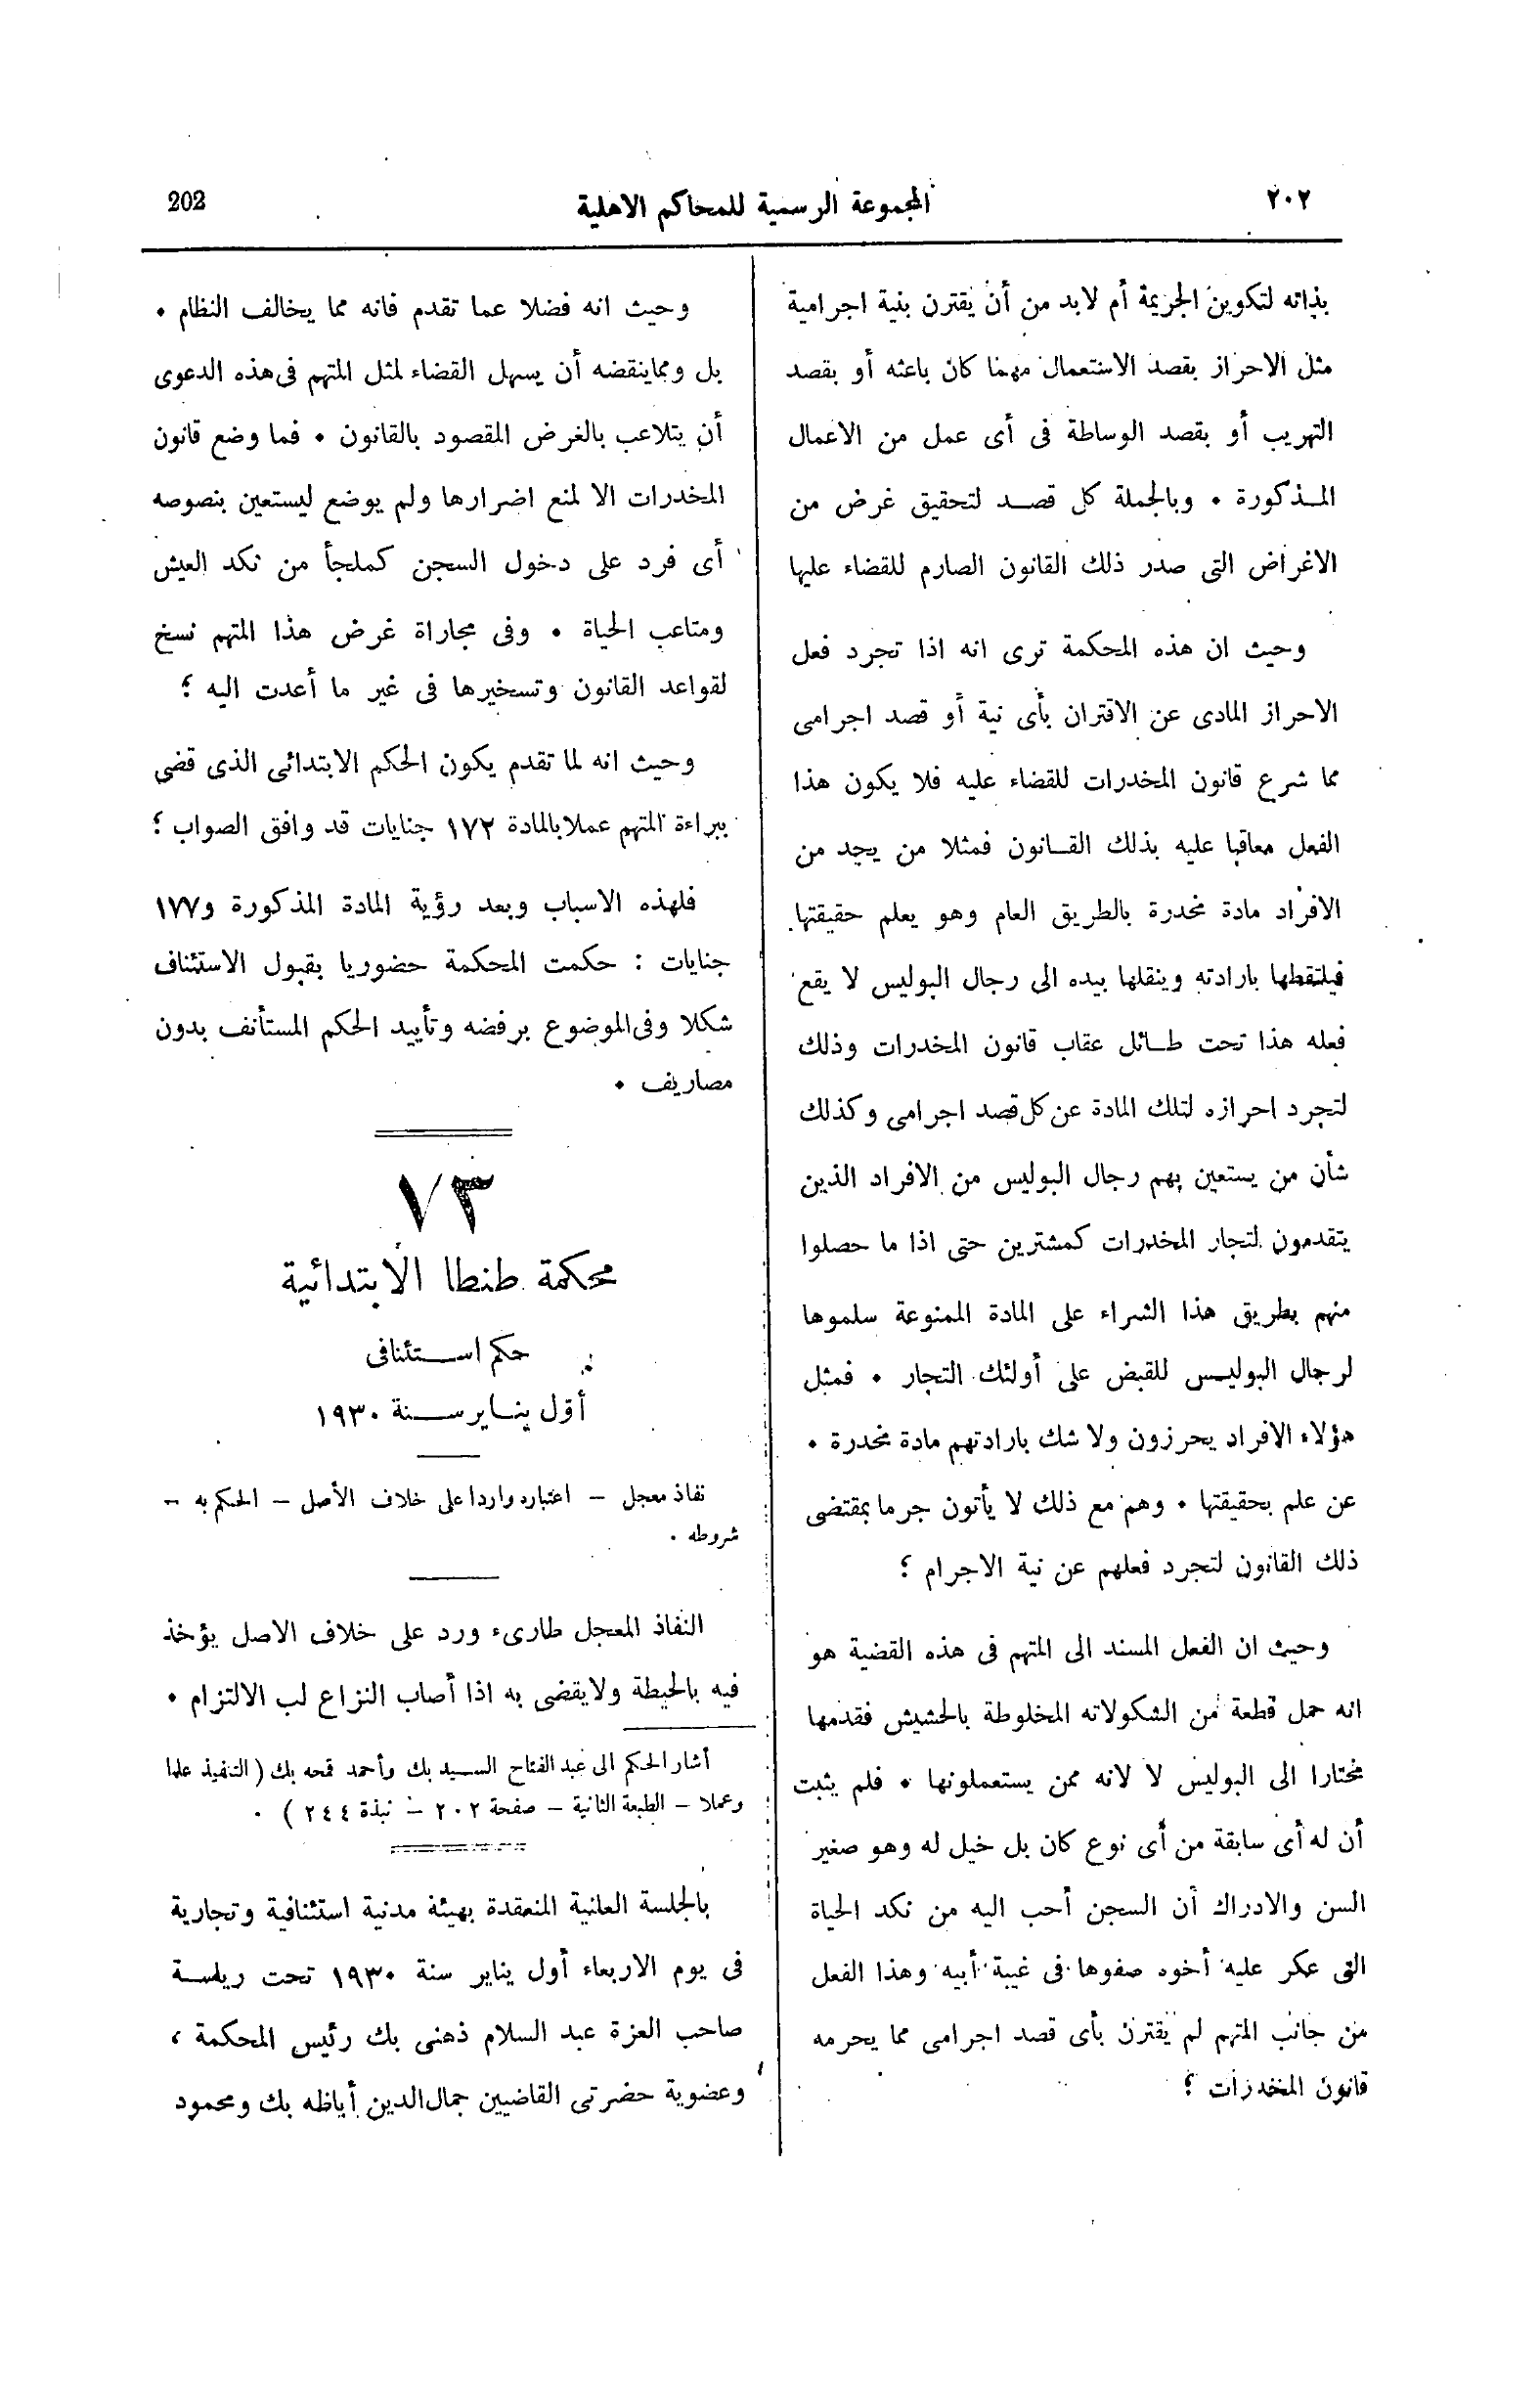 ٢٠٢
المجموعة الرسمية للمحاكم الاهلية
202
بذاته لتكوين الجريمة أم لابد من أن يقترن بنية اجرامية
مثل الاحراز بقصد الاستعمال مهما كان باعثه أو بقصد
التهريب أو بقصد الوساطة فى أى عمل من الاعمال
المذكورة • وبالجملة كل قصد لتحقيق غرض من
الاغراض التى صدر ذلك القانون الصارم للقضاء عليها
وحيث ان هذه المحكمة ترى انه اذا تجرد فعل
الاحراز المادى عن الاقتران بأى نية أو قصد اجرامى
مما شرع قانون المخدرات للقضاء عليه فلا يكون هذا
الفعل معاقبا عليه بذلك القانون فمثلا من يجد من
الافراد مادة مخدرة بالطريق العام وهو يعلم حقيقتها
فيلتقطها بارادته وينقلها بيده الى رجال البوليس لا يقع
فعله هذا تحت طائل عقاب قانون المخدرات وذلك
لتجرد احرازه لتلك المادة عن كل قصد اجرامى وكذلك
شأن من يستعين بهم رجال البوليس من الافراد الذين
يتقدمون لتجار المخدرات كمشترين حتى اذا ما حصلوا
منهم بطريق هذا الشراء على المادة الممنوعة سلموها
لرجال البوليس للقبض على أولئك التجار • فمثل
هؤلاء الافراد يحرزون ولا شك بارادتهم مادة مخدرة •
عن علم بحقيقتها • وهم مع ذلك لا يأتون جرما بمقتضى
ذلك القانون لتجرد فعلهم عن نية الاجرام ؛
وحيث ان الفعل المسند الى المتهم فى هذه القضية هو
انه حمل قطعة من الشكولاته المخلوطة بالحشيش فقدمها
مختارا الى البوليس لا لانه ممن يستعملونها • فلم يثبت
أن له أى سابقة من أى نوع كان بل خيل له وهو صغير
السن والادراك أن السجن أحب اليه من نكد الحياة
التى عكر عليه أخوه صفوها فى غيبة أبيه وهذا الفعل
من جانب المتهم لم يقترن بأى قصد اجرامى مما يحرمه
قانون المخدرات ؛
وحيث انه فضلا عما تقدم فانه مما يخالف النظام •
بل ومما ينقضه أن يسهل القضاء لمثل المتهم فى هذه الدعوى
أن يتلاعب بالغرض المقصود بالقانون • فما وضع قانون
المخدرات الا لمنع اضرارها ولم يوضع ليستعين بنصوصه
أى فرد على دخول السجن كملجأ من نكد العيش
ومتاعب الحياة • وفى مجاراة غرض هذا المتهم نسخ
لقواعد القانون وتسخيرها فى غير ما أعدت اليه ؛
وحيث انه لما تقدم يكون الحكم الابتدائى الذى قضى
ببراءة المتهم عملا بالمادة ١٧٢ جنايات قد وافق الصواب ؛
فلهذه الاسباب وبعد رؤية المادة المذكورة و١٧٧
جنايات : حكمت المحكمة حضوريا بقبول الاستئناف
شكلا وفى الموضوع برفضه وتأييد الحكم المستأنف بدون
مصاريف •
٧٣
محكمة طنطا الابتدائية
حكم استئنافى
أول يناير سنة ١٩٣٠
نفاذ معجل – اعتباره واردا على خلاف الأصل – الحكم به –
شروطه .
النفاذ المعجل طارىء ورد على خلاف الاصل يؤخذ
فيه بالحيطة ولا يقضى به اذا أصاب النزاع لب الالتزام •
أشار الحكم الى عبد الفتاح السيد بك وأحمد قمحه بك ( التنفيذ علما
وعملا – الطبعة الثانية – صفحة ٢٠٢ – نبذة ٢٤٤ ) .
بالجلسة العلنية المنعقدة بهيئة مدنية استئنافية وتجارية
فى يوم الاربعاء أول يناير سنة ١٩٣٠ تحت رياسة
صاحب العزة عبد السلام ذهنى بك رئيس المحكمة ،
وعضوية حضرتى القاضيين جمال الدين أباظه بك ومحمود